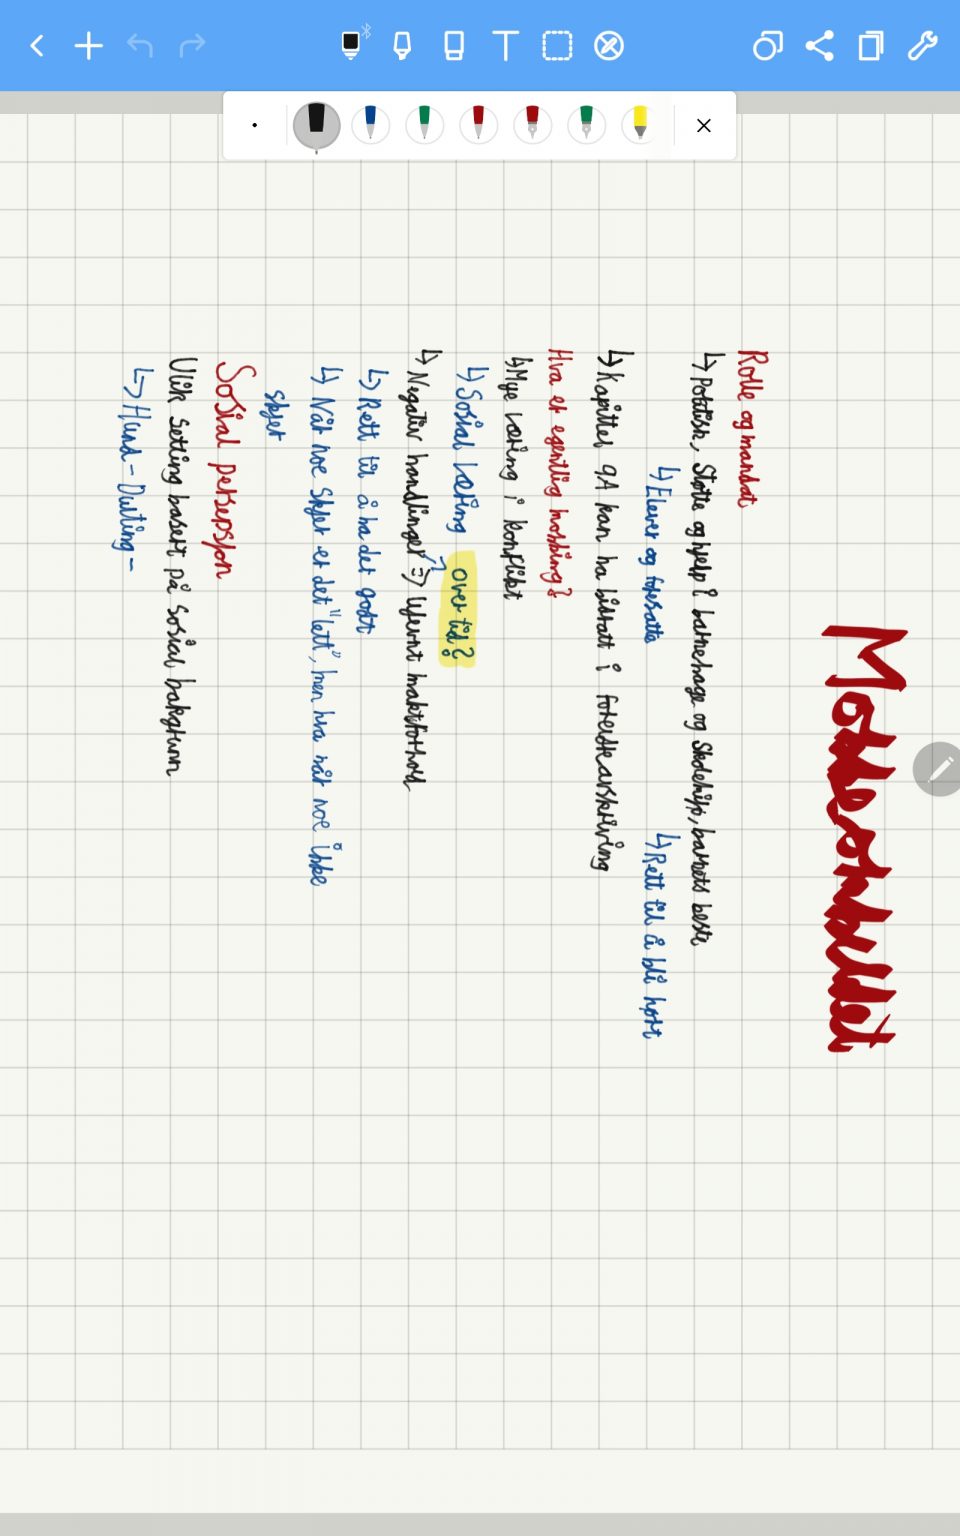 Mobbeombudet
Rolle og mandat
↳ Politisk, Støtte og hjelp i barnehage og skolemiljø, barnets beste
↳ Elever og foresatte ↳ Rett til å bli hørt
↳ Kapittel 9A kan ha bidratt i
Hva er egentlig mobbing?
↳ Mye læring i konflikt
↳ Sosial læring over tid?
↳ Negativ handlinger => Ujevnt maktforhold
↳ Rett til å ha det godt
↳ Når noe skjer er det "lett", men hva når noe ikke
skjer
Sosial persepsjon
Ulik Setting basert på sosial bakgrunn
↳ Hund -